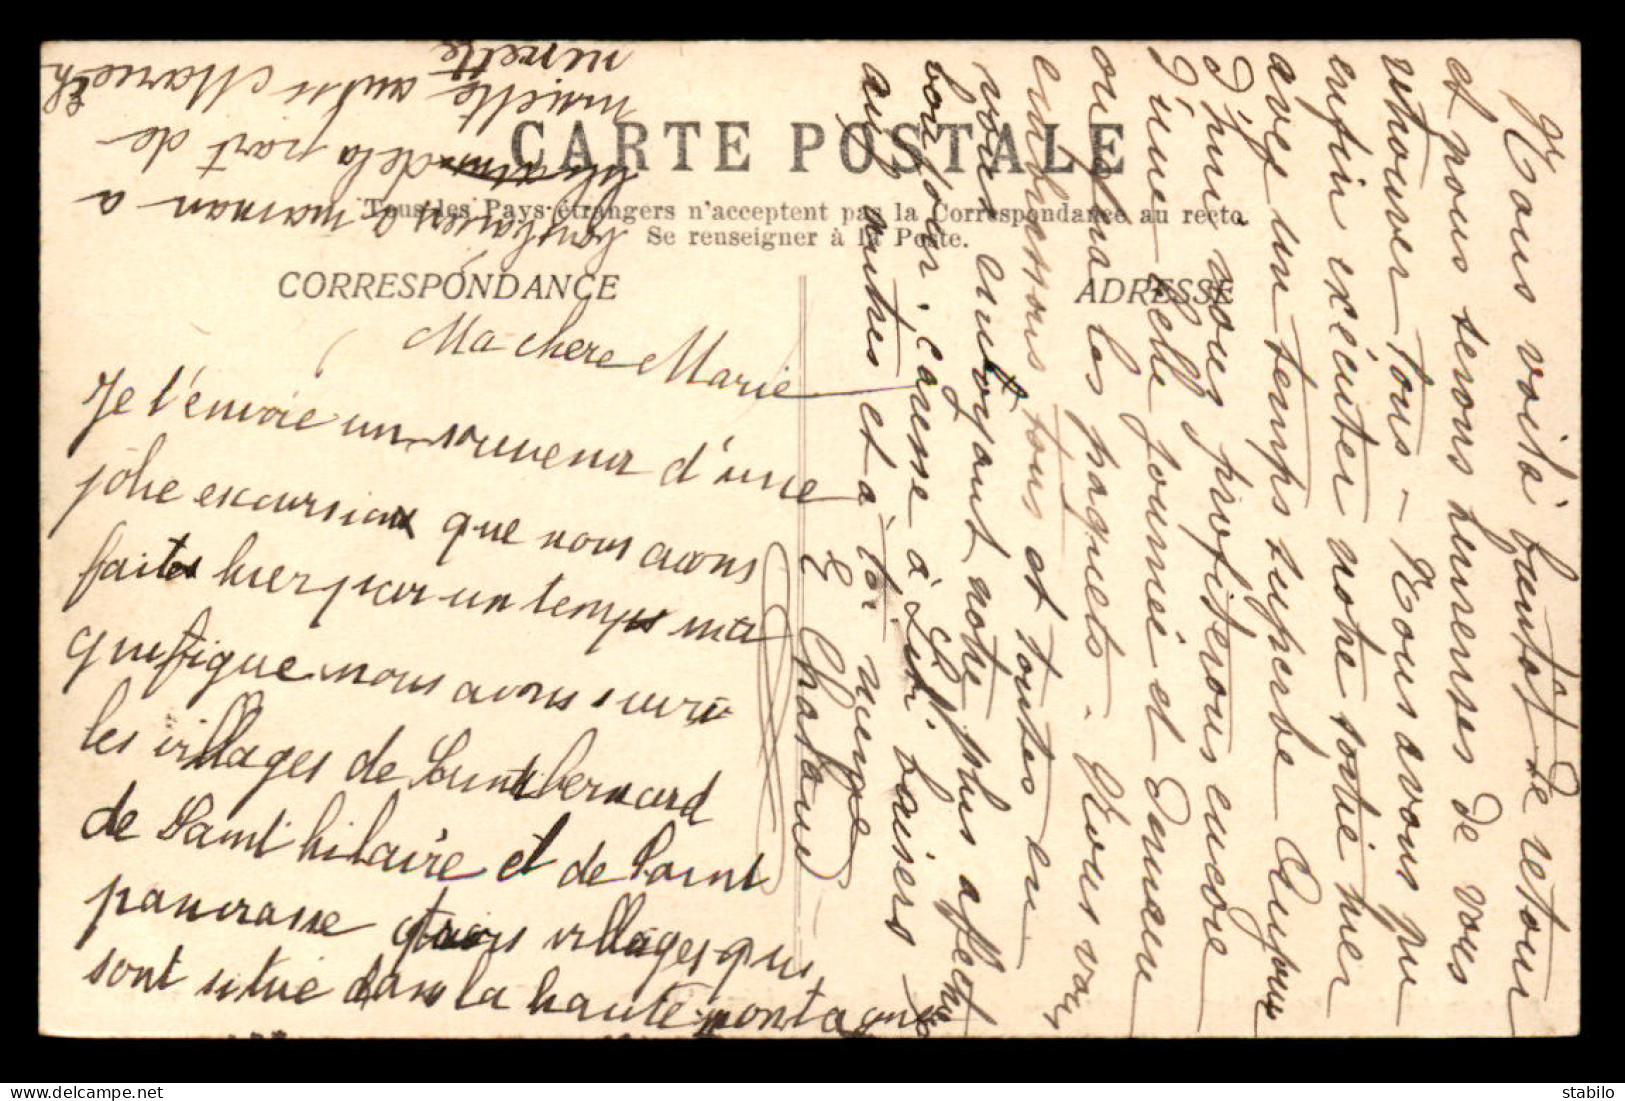 CARTE POSTALE
Tous les Pays étrangers n'acceptent pas la Correspondance au recto.
Se renseigner à la Poste.
CORRESPONDANCE
ADRESSE
Ma chere Marie
Je t'envoie un souvenir d'une
jolie excursion que nous avons
faites hier par un temps ma
gnifique nous avons suivi
les villages de Saint bernard
de Saint hilaire et de Saint
pancrasse trois villages qui
sont situé dans la haute montagne
bonjours a maman a
de la part de
miette aussi Marie
ninette
Nous voilà bientôt de retour
et nous serons heureuses de vous
retrouver tous - Nous avons pu
enfin exécuter notre sortie hier
avec un temps superbe Aujour
d'hui nous profiterons encore
d'une belle journée et demain
on fera les paquets. Nous vous
embrassons tous et toutes en
vous envoyant notre plus affectueux
bonjour. Caresse à Lili baisers
aux autres et à toi
E Chasaud
stabilo